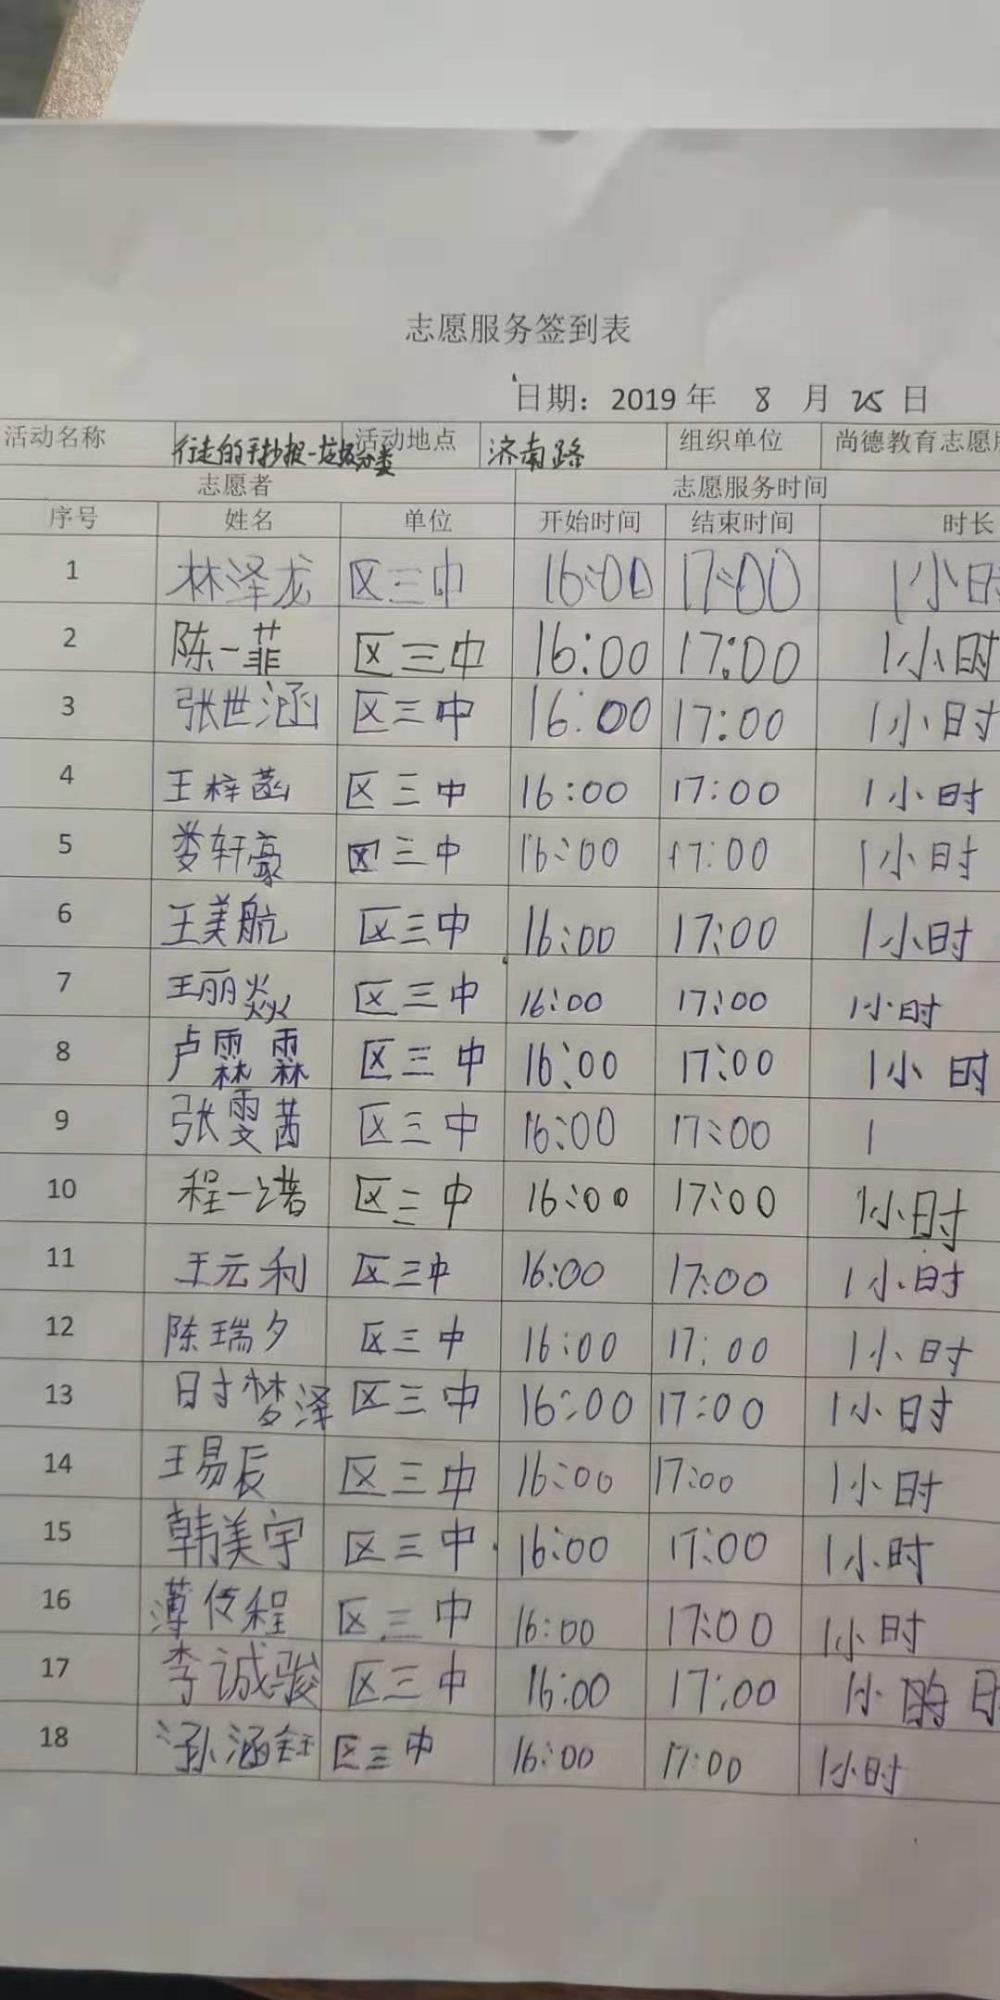 志愿服务签到表
日期：2019年 8 月 25 日
活动名称 行走的手抄报-垃圾分类 活动地点 济南路 组织单位 尚德教育志愿
志愿者 志愿服务时间
序号 姓名 单位 开始时间 结束时间 时长
1 林泽龙 区三中 16:00 17:00 1小时
2 陈一菲 区三中 16:00 17:00 1小时
3 张世涵 区三中 16:00 17:00 1小时
4 王梓菡 区三中 16:00 17:00 1小时
5 娄轩豪 区三中 16:00 17:00 1小时
6 王美航 区三中 16:00 17:00 1小时
7 王丽焱 区三中 16:00 17:00 1小时
8 卢霖霖 区三中 16:00 17:00 1小时
9 张雯茜 区三中 16:00 17:00 1
10 程一诺 区三中 16:00 17:00 1小时
11 王元利 区三中 16:00 17:00 1小时
12 陈瑞夕 区三中 16:00 17:00 1小时
13 时梦泽 区三中 16:00 17:00 1小时
14 王易辰 区三中 16:00 17:00 1小时
15 韩美宇 区三中 16:00 17:00 1小时
16 薄传程 区三中 16:00 17:00 1小时
17 李诚骏 区三中 16:00 17:00 1小时
18 孙涵钰 区三中 16:00 17:00 1小时